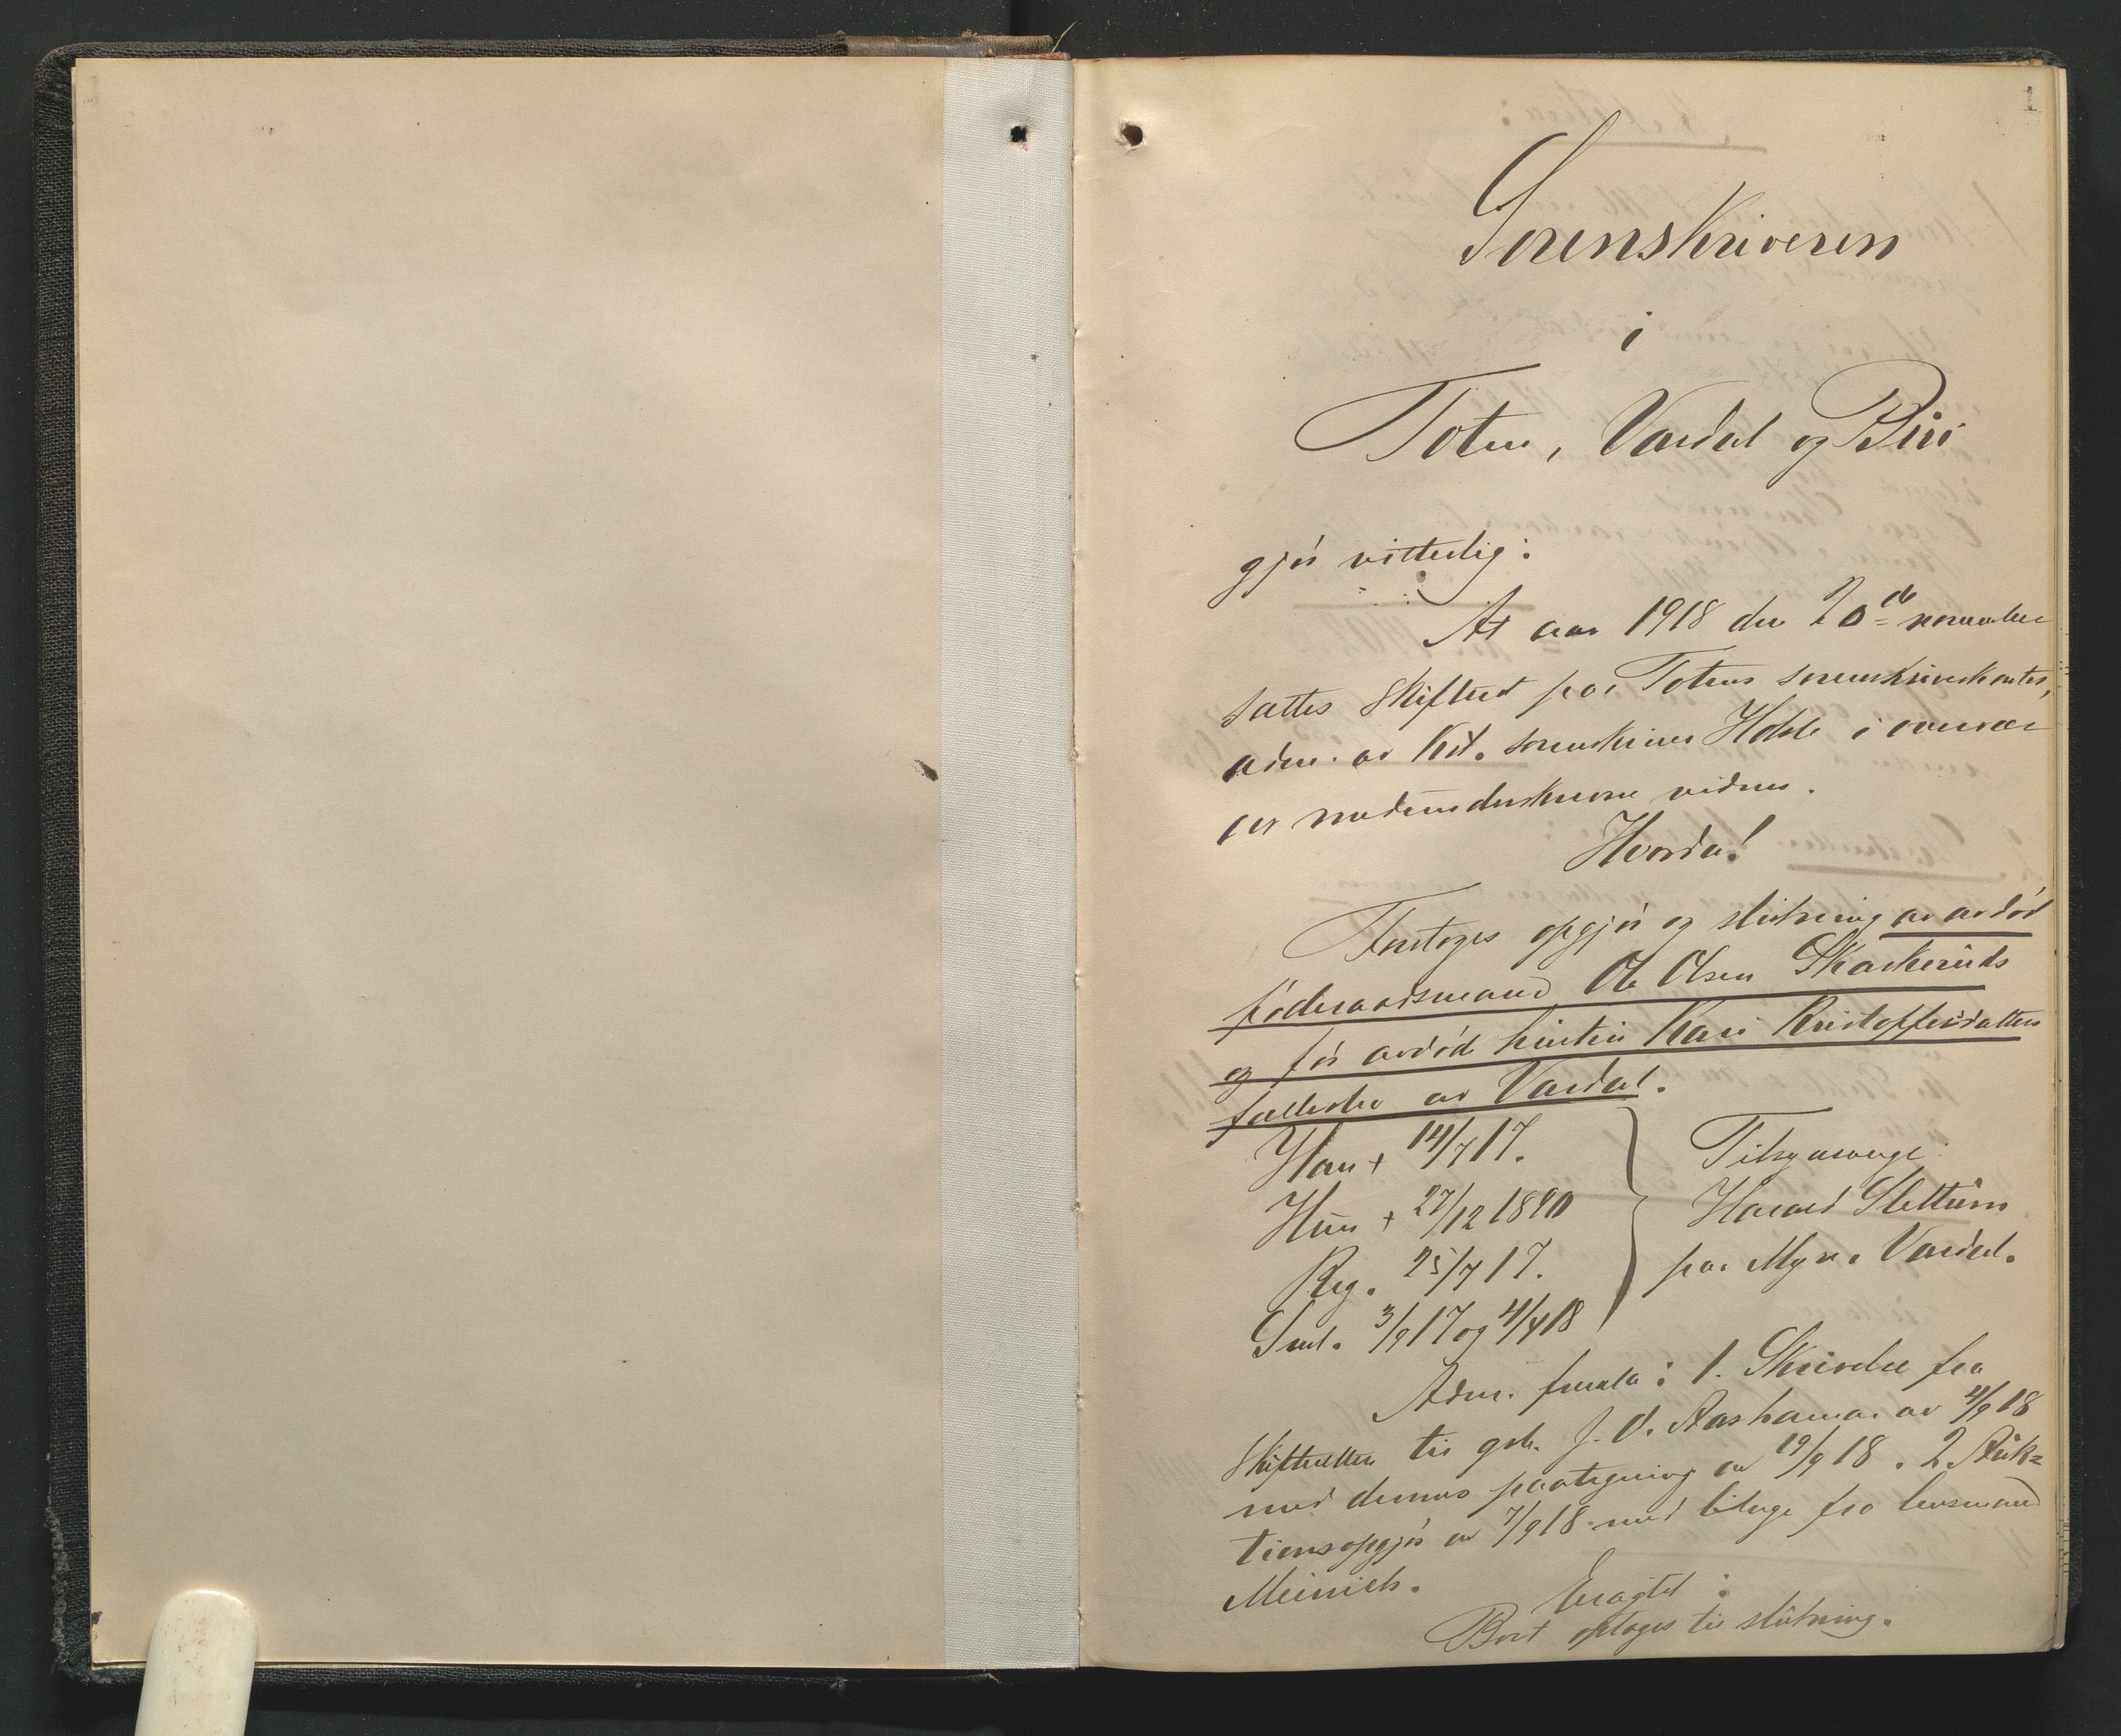 1
Sorenskriveren
i
Toten, Vardal og Biri
gjør vitterlig:
At aar 1918 den 20de november
sattes skifteret paa Totens sorenskriverkontor,
adm. av kst. sorenskriver Holst i overvær
av nedenunderskrevne vidner.
Hvorda!
Foretoges opgjør og slutning av avdød
føderaadsmand Ole Olsen Skarkeruds
og før avdød hustru Kari Kristoffersdatters
fællesbo av Vardal.
Han + 14/7 17.
Hun + 27/12 1890
Reg. 25/7 17.
Saml. 3/9 17 og 4/4 18
Tilsynsverge
Harald Slettum
paa Myre i Vardal.
Adm. fremla: 1. Skrivelse fra
skifteretten til gbr. J. O. Aashamar av 4/9 18
med dennes paategning av 19/9 18. 2 Auk=
tionsopgjør av 7/9 18 med bilage fra lensmand
Meinich.
Eragtet:
Boet optages til slutning.